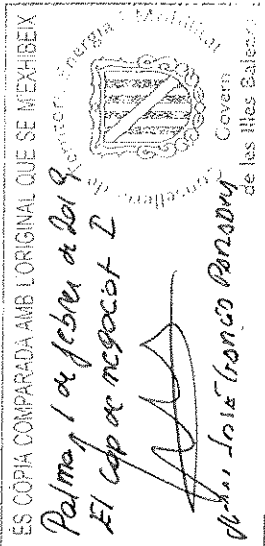 ÉS CÒPIA COMPARADA AMB L'ORIGINAL QUE SE M'EXHIBEIX
Palma, 1 de febrer de 2019
El cap de negociat I
Conselleria de Territori, Energia i Mobilitat
Govern
de les Illes Balears
José García